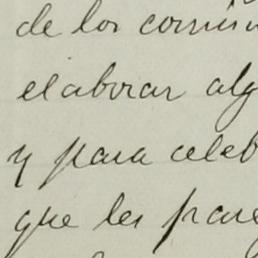 de los comisi
elaborar alg
y para celeb
que les pare